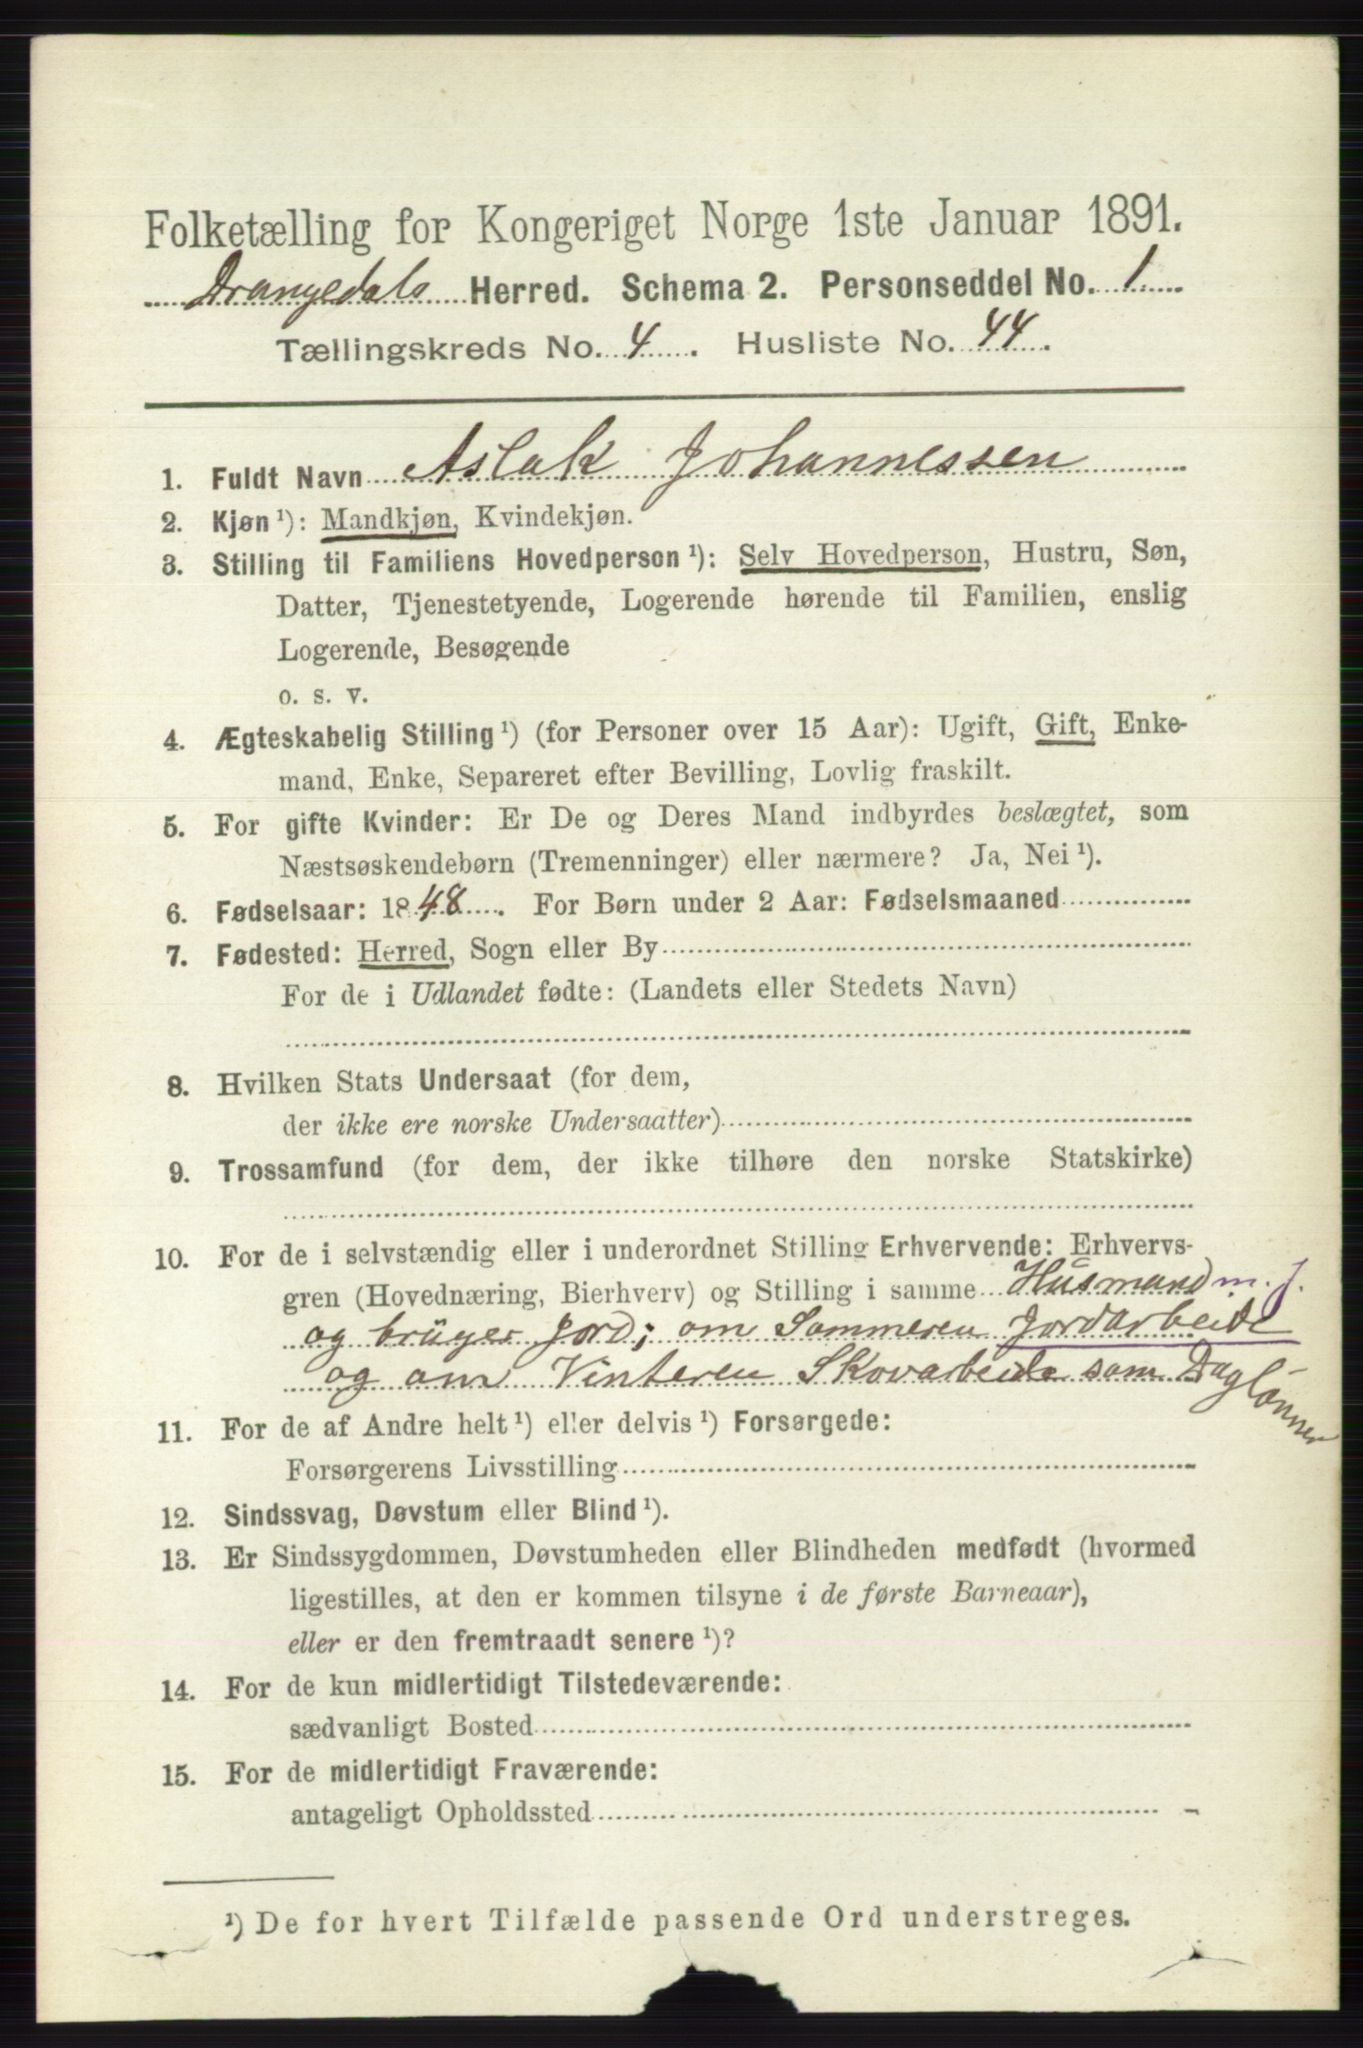 Folketælling for Kongeriget Norge 1ste Januar 1891.
Drangedals Herred. Schema 2. Personseddel No. 1
Tællingskreds No. 4. Husliste No. 44.
1. Fuldt Navn Aslak Johannessen
2. Kjøn ¹): Mandkjøn, Kvindekjøn.
3. Stilling til Familiens Hovedperson ¹): Selv Hovedperson, Hustru, Søn,
Datter, Tjenestetyende, Logerende hørende til Familien, enslig
Logerende, Besøgende
o. s. v.
4. Ægteskabelig Stilling ¹) (for Personer over 15 Aar): Ugift, Gift, Enke-
mand, Enke, Separeret efter Bevilling, Lovlig fraskilt.
5. For gifte Kvinder: Er De og Deres Mand indbyrdes beslægtet, som
Næstsøskendebørn (Tremenninger) eller nærmere? Ja, Nei ¹).
6. Fødselsaar: 1848. For Børn under 2 Aar: Fødselsmaaned
7. Fødested: Herred, Sogn eller By
For de i Udlandet fødte: (Landets eller Stedets Navn)
8. Hvilken Stats Undersaat (for dem,
der ikke ere norske Undersaatter)
9. Trossamfund (for dem, der ikke tilhøre den norske Statskirke)
10. For de i selvstændig eller i underordnet Stilling Erhvervende: Erhvervs-
gren (Hovednæring, Bierhverv) og Stilling i samme Husmand m. j.
og brüger Jord; om Sommeren Jordarbeide
og om Vinteren Skovarbeide som Daglönner
11. For de af Andre helt ¹) eller delvis ¹) Forsørgede:
Forsørgerens Livsstilling
12. Sindssvag, Døvstum eller Blind ¹).
13. Er Sindssygdommen, Døvstumheden eller Blindheden medfødt (hvormed
ligestilles, at den er kommen tilsyne i de første Barneaar),
eller er den fremtraadt senere ¹)?
14. For de kun midlertidigt Tilstedeværende:
sædvanligt Bosted
15. For de midlertidigt Fraværende:
antageligt Opholdssted
¹) De for hvert Tilfælde passende Ord understreges.